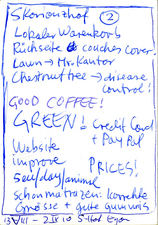 Skorianzhof ②
Lokaler Warenkorb
Rücksete couches cover
Lawn → Mr. Kantor
Chestnut tree → disease
control!
GOOD COFFEE!
GREEN! = Credit Card
+ PayPal
Website
improve PRICES!
Seil/day/animal
Schonmatratzen: korrekte
Grösse + gute gummis